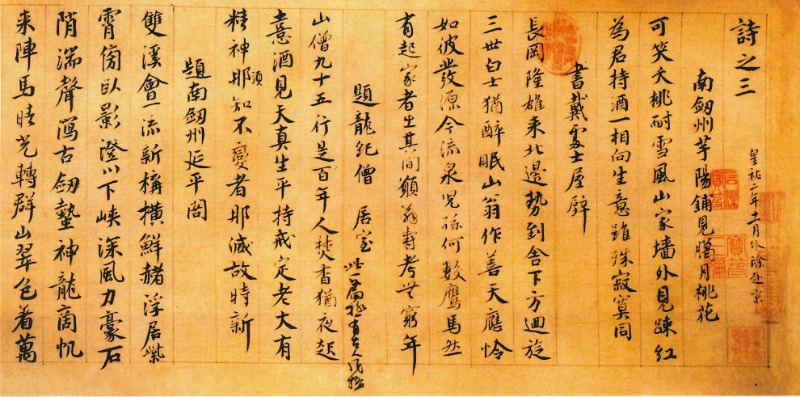 詩之三
皇祐二年十一月外除赴京
南劔州芋陽鋪見臘月桃花
可笑夭桃耐雪風山家墻外見疎紅
為君持酒一相向生意雖殊寂寞同
書戴處士屋壁
長岡隆雄來北邊勢到舍下方迴旋
三世白士猶醉眠山翁作善天應憐
如彼發源今流泉兒孫何數鷹馬然
有起家者出其間願翁壽考無窮年
題龍紀僧居室
此一篇極有古人風格
山僧九十五行是百年人焚香猶夜起
憙酒見天真生平持戒定老大有
精神那須知不變者那減故時新
題南劔州延平閣
雙溪會一流新構橫鮮赭浮居紫
霄傍臥影澄川下峽深風力豪石
陗湍聲瀉古劔蟄神龍商帆
來陣馬晴光轉群山翠色着萬